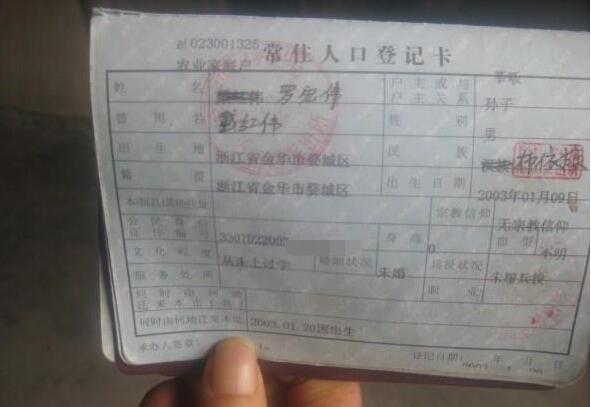 023001325 常住人口登记卡
农业家客户
姓名 罗宏伟 户主或与户主关系 孙子
曾用名 红伟 性别 男
出生地 浙江省金华市婺城区 民族
籍贯 浙江省金华市婺城区 出生日期 2003年01月09日
本市(县)其他住址 宗教信仰 无宗教信仰
公民身份证件编号 3307022007 身高 0 血型 不明
文化程度 从未上过学 婚姻状况 未婚 兵役状况 未服兵役
服务处所 职业
何时由何地迁来本市(县)
何时由何地迁来本址 2003.01.20因出生
承办人签章: 登记日期: 年 月 日